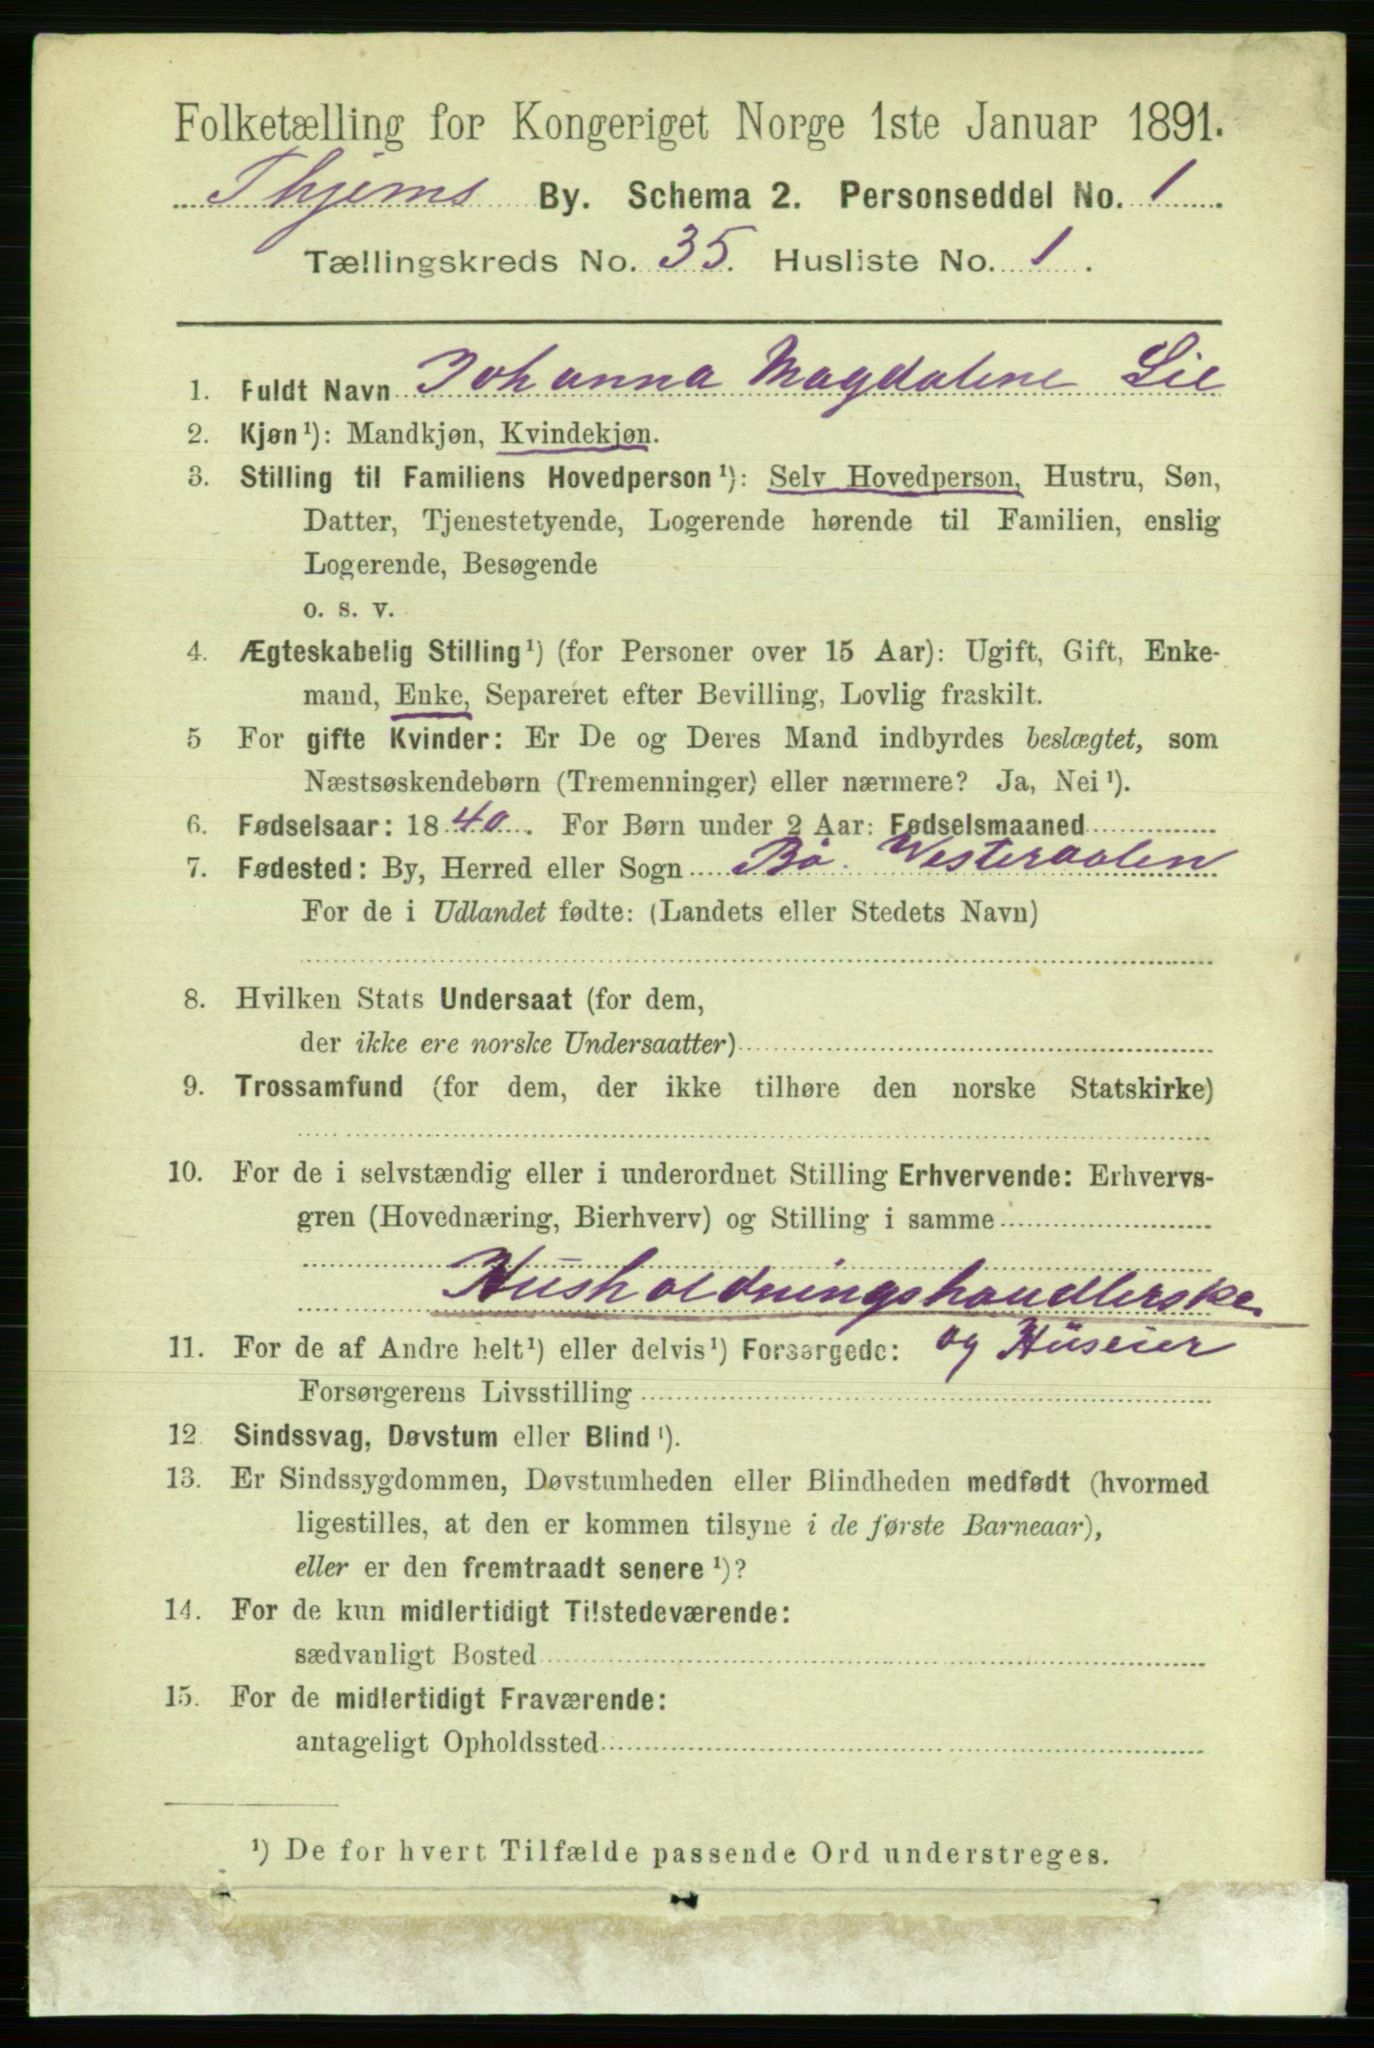 Folketælling for Kongeriget Norge 1ste Januar 1891.
Thjems By. Schema 2. Personseddel No. 1
Tællingskreds No. 35. Husliste No. 1.
1. Fuldt Navn Johanna Magdalene Lie
2. Kjøn¹): Mandkjøn, Kvindekjøn.
3. Stilling til Familiens Hovedperson¹): Selv Hovedperson, Hustru, Søn,
Datter, Tjenestetyende, Logerende hørende til Familien, enslig
Logerende, Besøgende
o. s. v.
4. Ægteskabelig Stilling¹) (for Personer over 15 Aar): Ugift, Gift, Enke-
mand, Enke, Separeret efter Bevilling, Lovlig fraskilt.
5 For gifte Kvinder: Er De og Deres Mand indbyrdes beslægtet, som
Næstsøskendebørn (Tremenninger) eller nærmere? Ja, Nei¹).
6. Fødselsaar: 1840. For Børn under 2 Aar: Fødselsmaaned
7. Fødested: By, Herred eller Sogn Bø. Westeraalen
For de i Udlandet fødte: (Landets eller Stedets Navn)
8. Hvilken Stats Undersaat (for dem,
der ikke ere norske Undersaatter)
9. Trossamfund (for dem, der ikke tilhøre den norske Statskirke)
10. For de i selvstændig eller i underordnet Stilling Erhvervende: Erhvervs-
gren (Hovednæring, Bierhverv) og Stilling i samme
Husholdningshandlerske
og Huseier
11. For de af Andre helt¹) eller delvis¹) Forsørgede:
Forsørgerens Livsstilling
12 Sindssvag, Døvstum eller Blind¹).
13. Er Sindssygdommen, Døvstumheden eller Blindheden medfødt (hvormed
ligestilles, at den er kommen tilsyne i de første Barneaar),
eller er den fremtraadt senere¹)?
14. For de kun midlertidigt Tilstedeværende:
sædvanligt Bosted
15. For de midlertidigt Fraværende:
antageligt Opholdssted
¹) De for hvert Tilfælde passende Ord understreges.